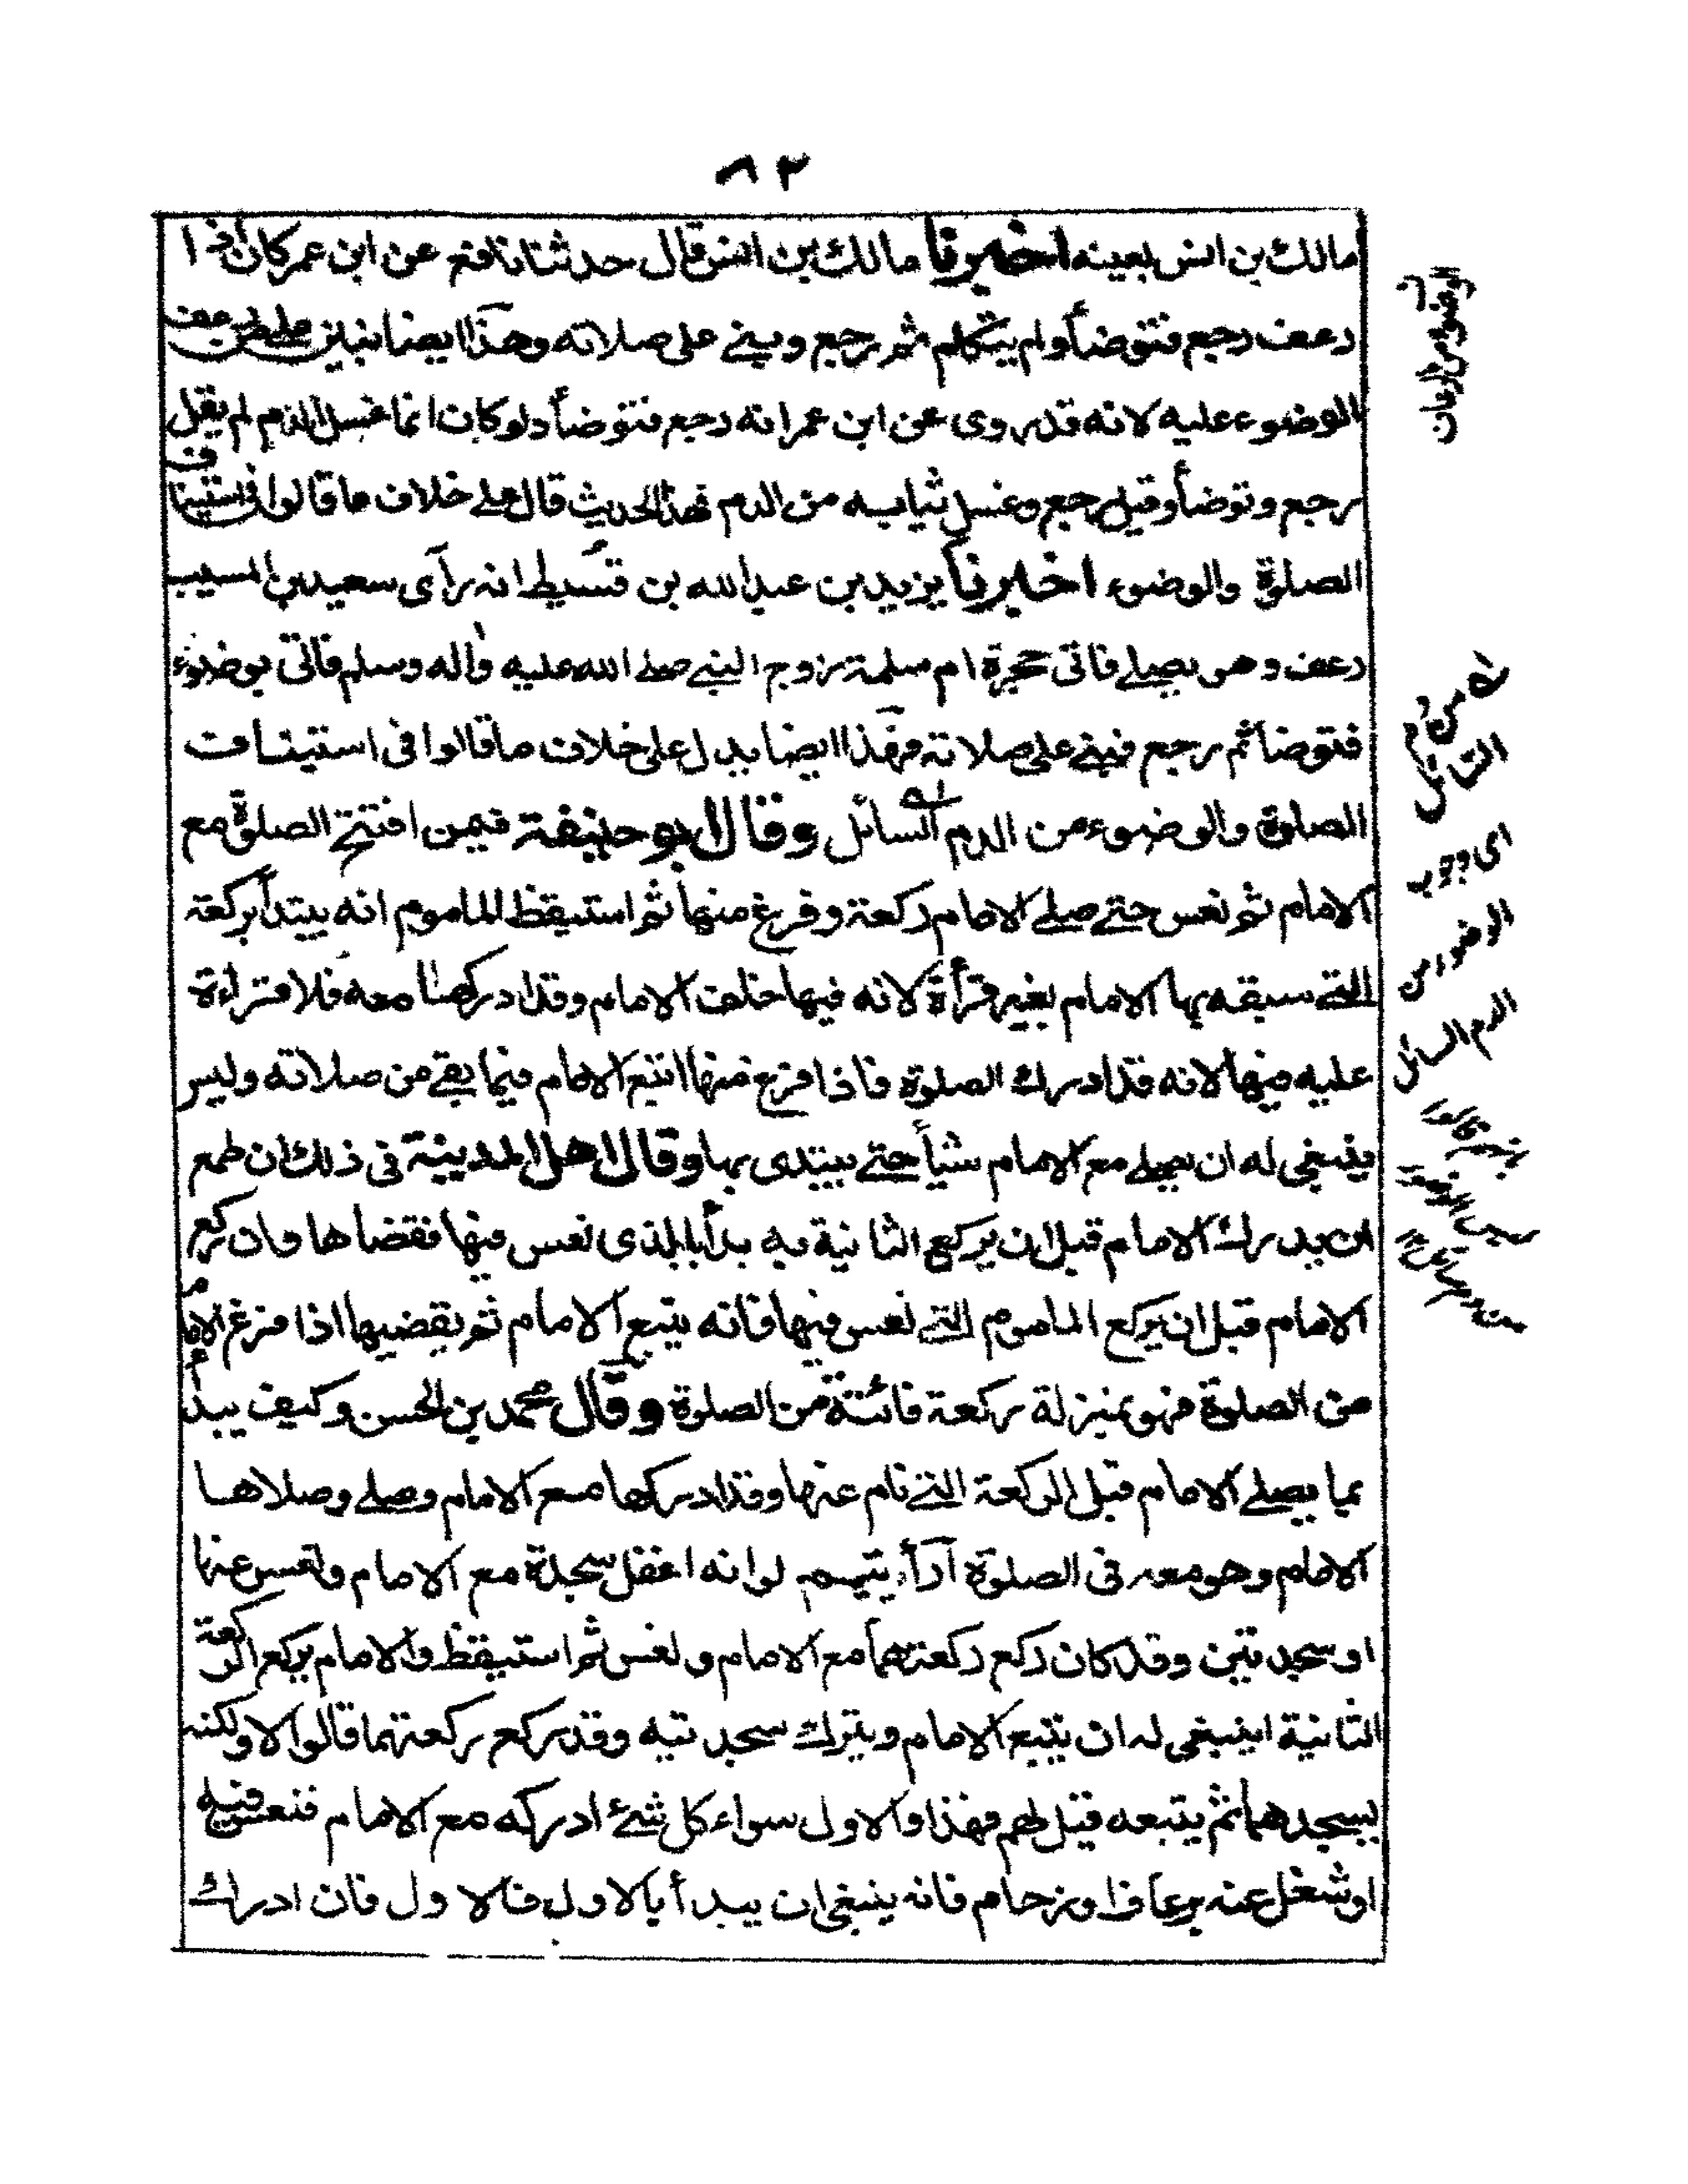 ٨٢
مالك بن انس بعينه اخبرنا مالك بن انس قال حدثنا نافع عن ابن عمر كان اذا
رعف رجع فتوضأ ولم يتكلم ثم رجع وبنى على صلاته وهذا ايضا
الوضوء عليه لانه قد روى عن ابن عمر انه رجع فتوضأ ولو كان انما غسل الدم لم يقل
رجع وتوضأ وقيل رجع وغسل ثيابه من الدم فهذا الحديث قال على خلاف ما قالوا فى استيناف
الصلوة والوضوء اخبرنا يزيد بن عبد الله بن قسيط انه رآى سعيد بن المسيب
رعف وهو يصلى فاتى حجرة ام سلمة زوج النبى صلى الله عليه واله وسلم فاتى بوضوء
فتوضا ثم رجع فبنى على صلاته فهذا ايضا يدل على خلاف ما قالوا فى استيناف
الصلوة والوضوء من الدم السائل وقال ابو حنيفة فيمن افتتح الصلوة مع
الامام ثم نعس حتى صلى الامام ركعة وفرغ منها ثم استيقظ الماموم انه يبتدأ بركعة
التى سبقه بها الامام بغير قرأة لانه فيها خلف الامام وقد ادركها معه فلا قراءة
عليه فيها لانه قد ادرك الصلوة فاذا فرغ منها اتبع الامام فيما بقى من صلاته وليس
ينبغى له ان يصلى مع الامام شيأ حتى يبتدى بها وقال اهل المدينة فى ذلك ان طمع
ان يدرك الامام قبل ان يركع الثانية به بدأ بالذى نعس فيها فقضاها وان ركع
الامام قبل ان يركع الماموم التى نعس فيها فانه يتبع الامام ثم يقضيها اذا فرغ الامام
من الصلوة فهو بمنزلة ركعة فائتة من الصلوة وقال محمد بن الحسن وكيف يبدأ
بما يصلى الامام قبل الركعة التى نام عنها وقد ادركها مع الامام وصلى وصلاها
الامام وهو معه فى الصلوة أرأيتم لو انه اغفل سجدة مع الامام ونعس عنها
او سجدتين وقد كان ركع ركعتهما مع الامام ونعس ثم استيقظ والامام يركع الركعة
الثانية اينبغى له ان يتبع الامام ويترك سجدتيه وقد ركع ركعتهما قالوا لا ولكنه
يسجدهما ثم يتبعه قيل لهم فهذا والاول سواء كل شئ ادركه مع الامام فنعس فيه
او شغل عنه برعاف او زحام فانه ينبغى ان يبدأ بالاول فالاول فان ادرك
الوضوء من الرعاف
من دم
السائل
اى وجوب
الوضوء من
الدم السائل